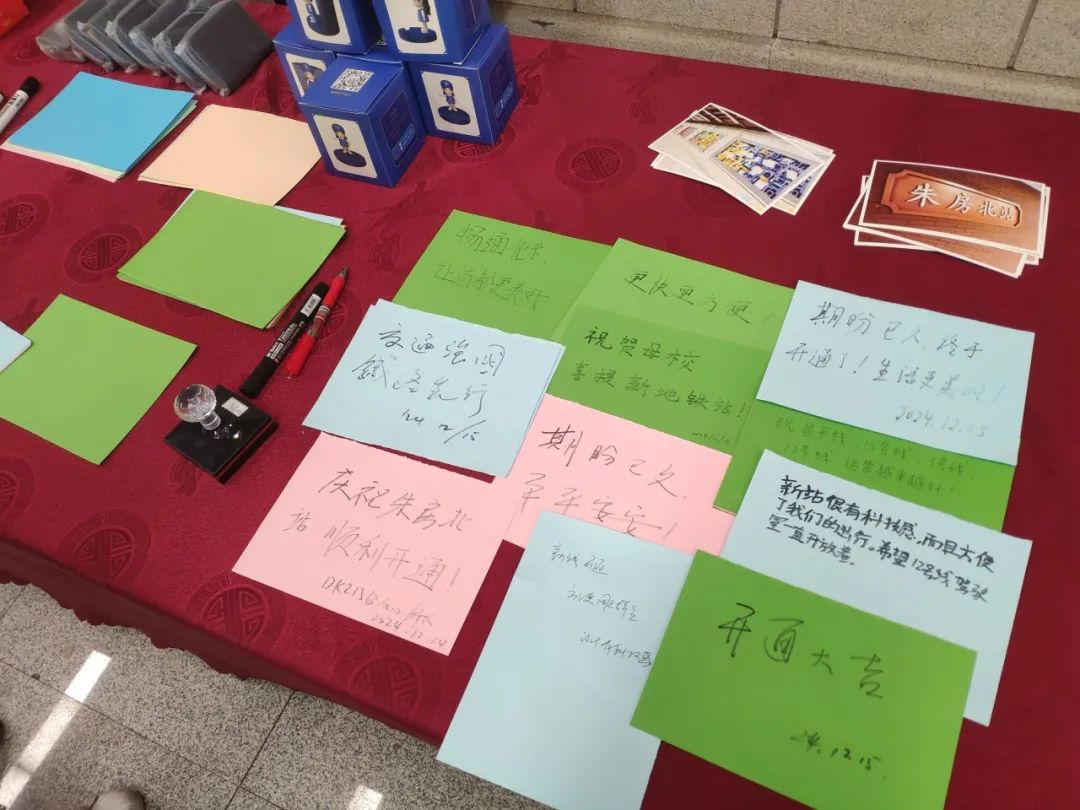 朱房北站
畅通北京,
让首都更美好
更快更方便!
祝贺母校
喜提新地铁站!
2024/12/15
期盼已久,终于
开通了!生活更美好!
2024.12.15
交通強国
鐵路先行
24 12/15
祝昌平线、15号线、
12号线 运营越来越好!
期盼已久,
平平安安!
新站很有科技感,而且方便
了我们的出行。希望12号线驾驶
室一直开放着.
庆祝朱房北
站 顺利开通!
2024.12.14
新线开通
开通大吉
24.12.15.